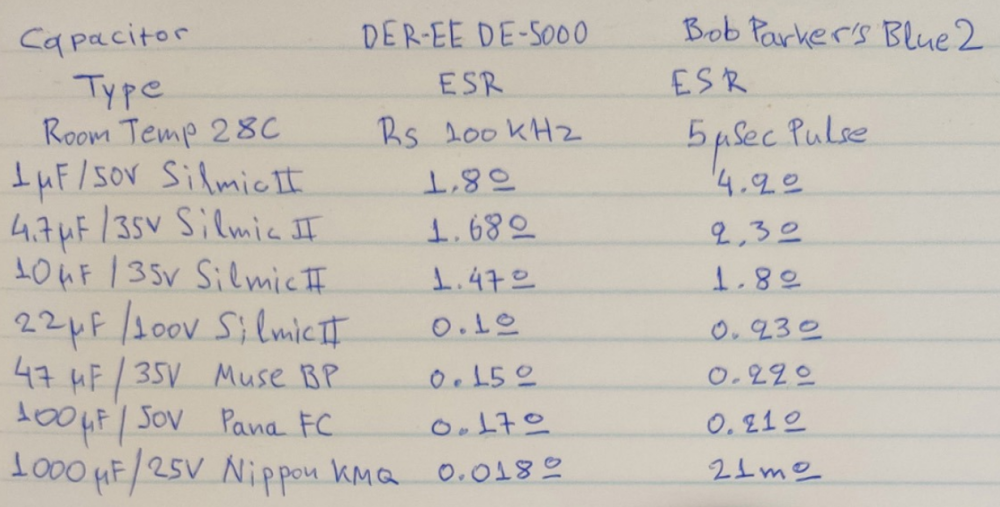 Capacitor DER-EE DE-5000 Bob Parker's Blue 2
Type ESR ESR
Room Temp 28C Rs 100 KHz 5 µSec Pulse
1µF/50V Silmic II 1.8Ω 4.2Ω
4.7µF/35V Silmic II 1.68Ω 2.3Ω
10µF/35V Silmic II 1.47Ω 1.8Ω
22µF/100V Silmic II 0.1Ω 0.23Ω
47µF/35V Muse BP 0.15Ω 0.22Ω
100µF/50V Pana FC 0.17Ω 0.21Ω
1000µF/25V Nippon KMQ 0.018Ω 21mΩ